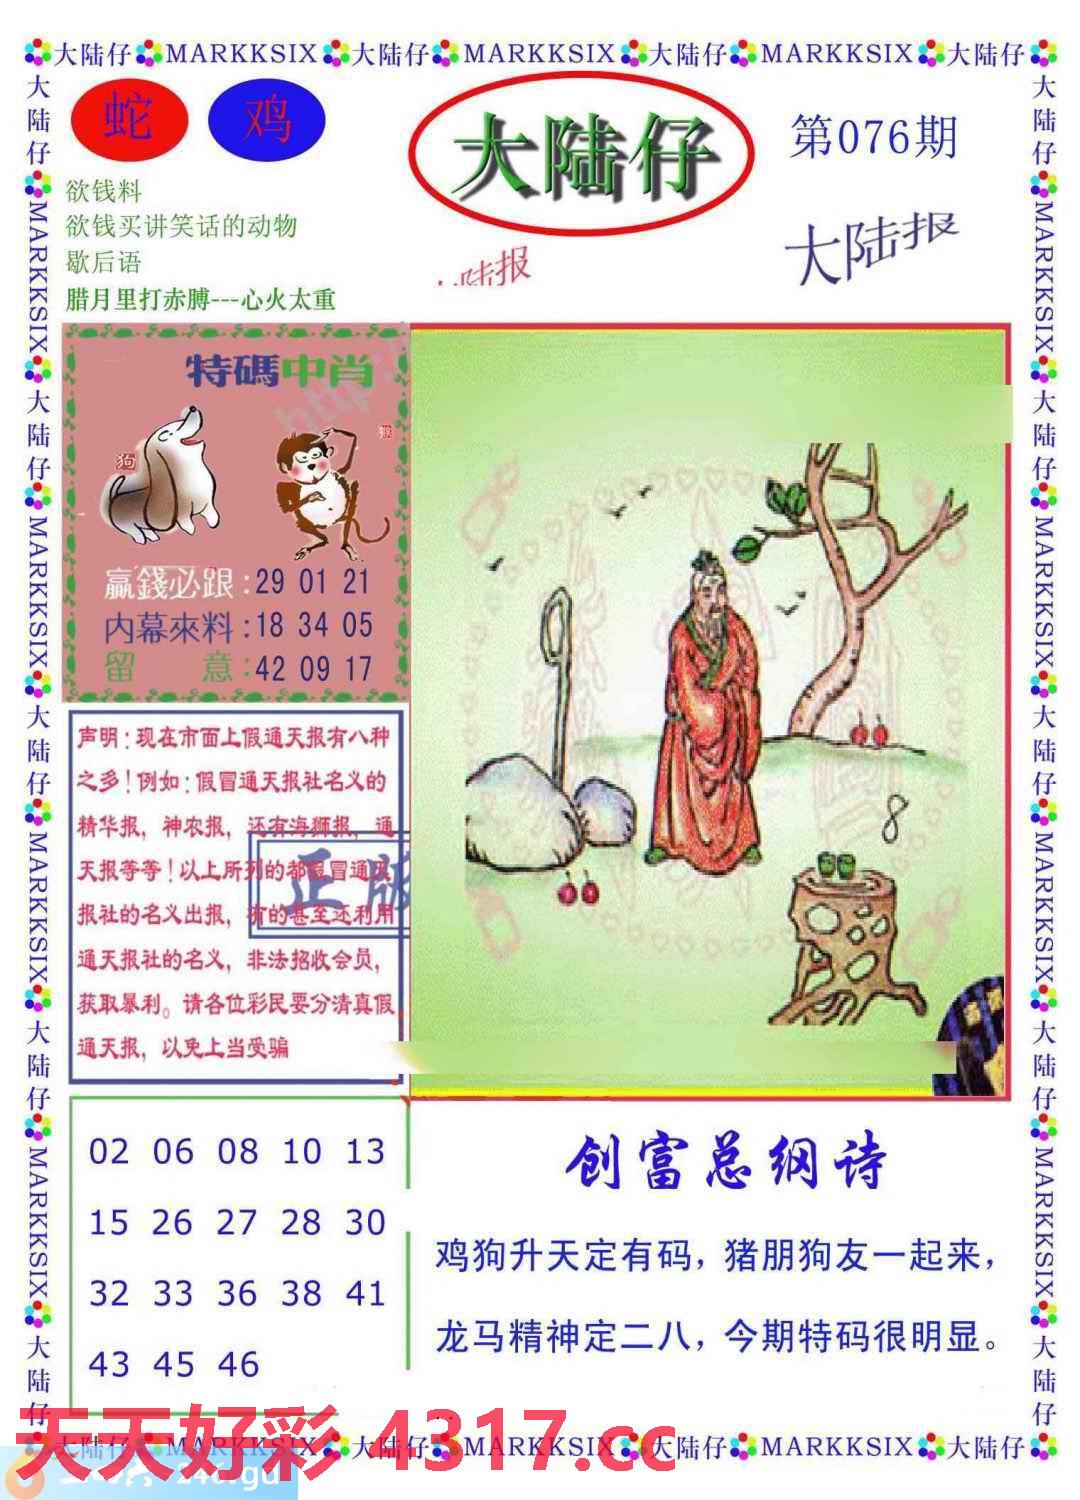 大陆仔 MARKKSIX 大陆仔 MARKKSIX 大陆仔 MARKKSIX 大陆仔
大陆仔 MARKKSIX 大陆仔 MARKKSIX 大陆仔 MARKKSIX 大陆仔 MARKKSIX 大陆仔
蛇 鸡
大陆仔
第076期
欲钱料
欲钱买讲笑话的动物
歇后语
腊月里打赤膊---心火太重
陆报
大陆报
特碼中肖
狗
猴
贏錢必跟:29 01 21
内幕來料:18 34 05
留 意:42 09 17
声明:现在市面上假通天报有八种
之多!例如:假冒通天报社名义的
精华报,神农报,还有海狮报,通
天报等等!以上所列的都是冒通天
报社的名义出报,有的甚至还利用
通天报社的名义,非法招收会员,
获取暴利。请各位彩民要分清真假
通天报,以免上当受骗
正版
8
02 06 08 10 13
15 26 27 28 30
32 33 36 38 41
43 45 46
创富总纲诗
鸡狗升天定有码,猪朋狗友一起来,
龙马精神定二八,今期特码很明显。
大陆仔 MARKKSIX 大陆仔 MARKKSIX 大陆仔 MARKKSIX 大陆仔 MARKKSIX 大陆仔
天天好彩 4317.cc
大陆仔 MARKKSIX 大陆仔 MARKKSIX 大陆仔 MARKKSIX 大陆仔
246.gd